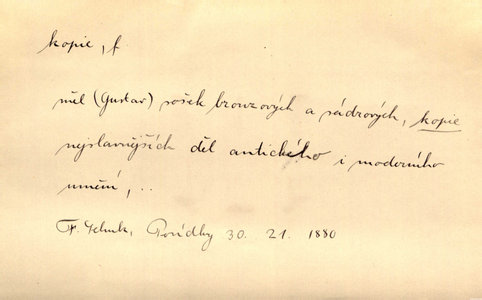 kopie, f.
měl (Gustav) sošek bronzových a sádrových, kopie
nejslavnějších děl antického i moderního
umění, ..
F. Schulz, Povídky 30. 21. 1880